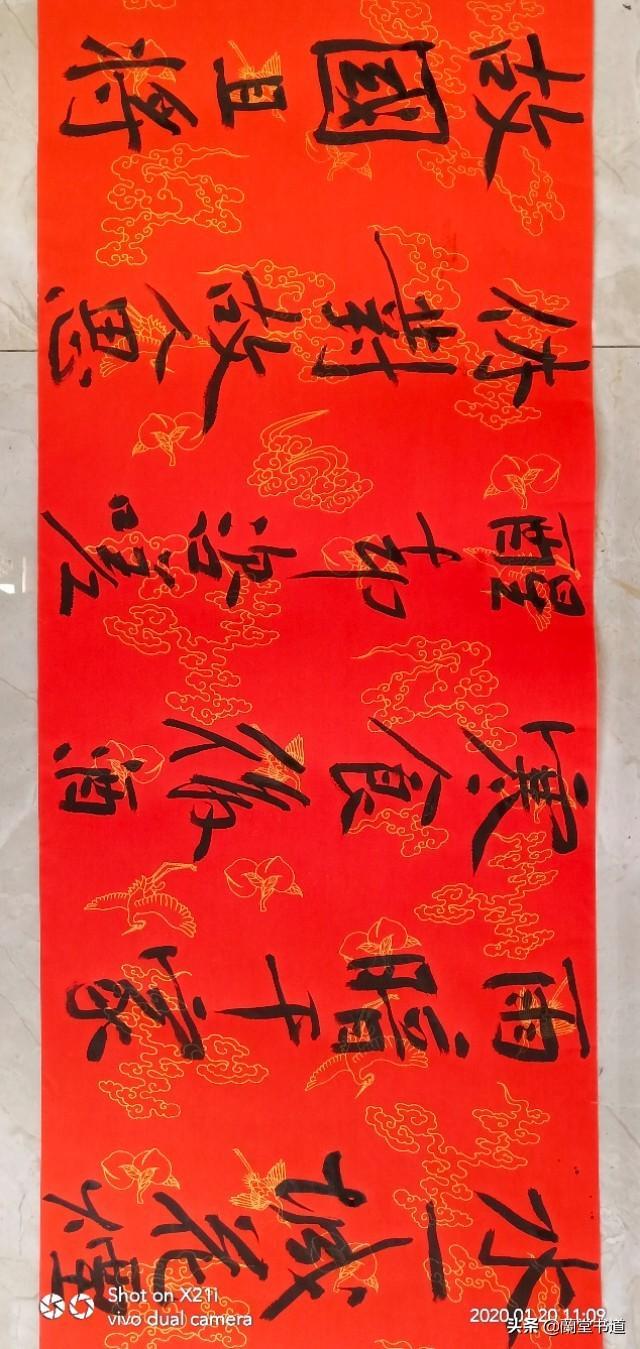 水一城花煙
雨暗千家
寒食後酒
醒却咨嗟
休對故人思
故國且将
Shot on X21i
vivo dual camera
2020.01.20 11:09
头条 @蘭堂书道